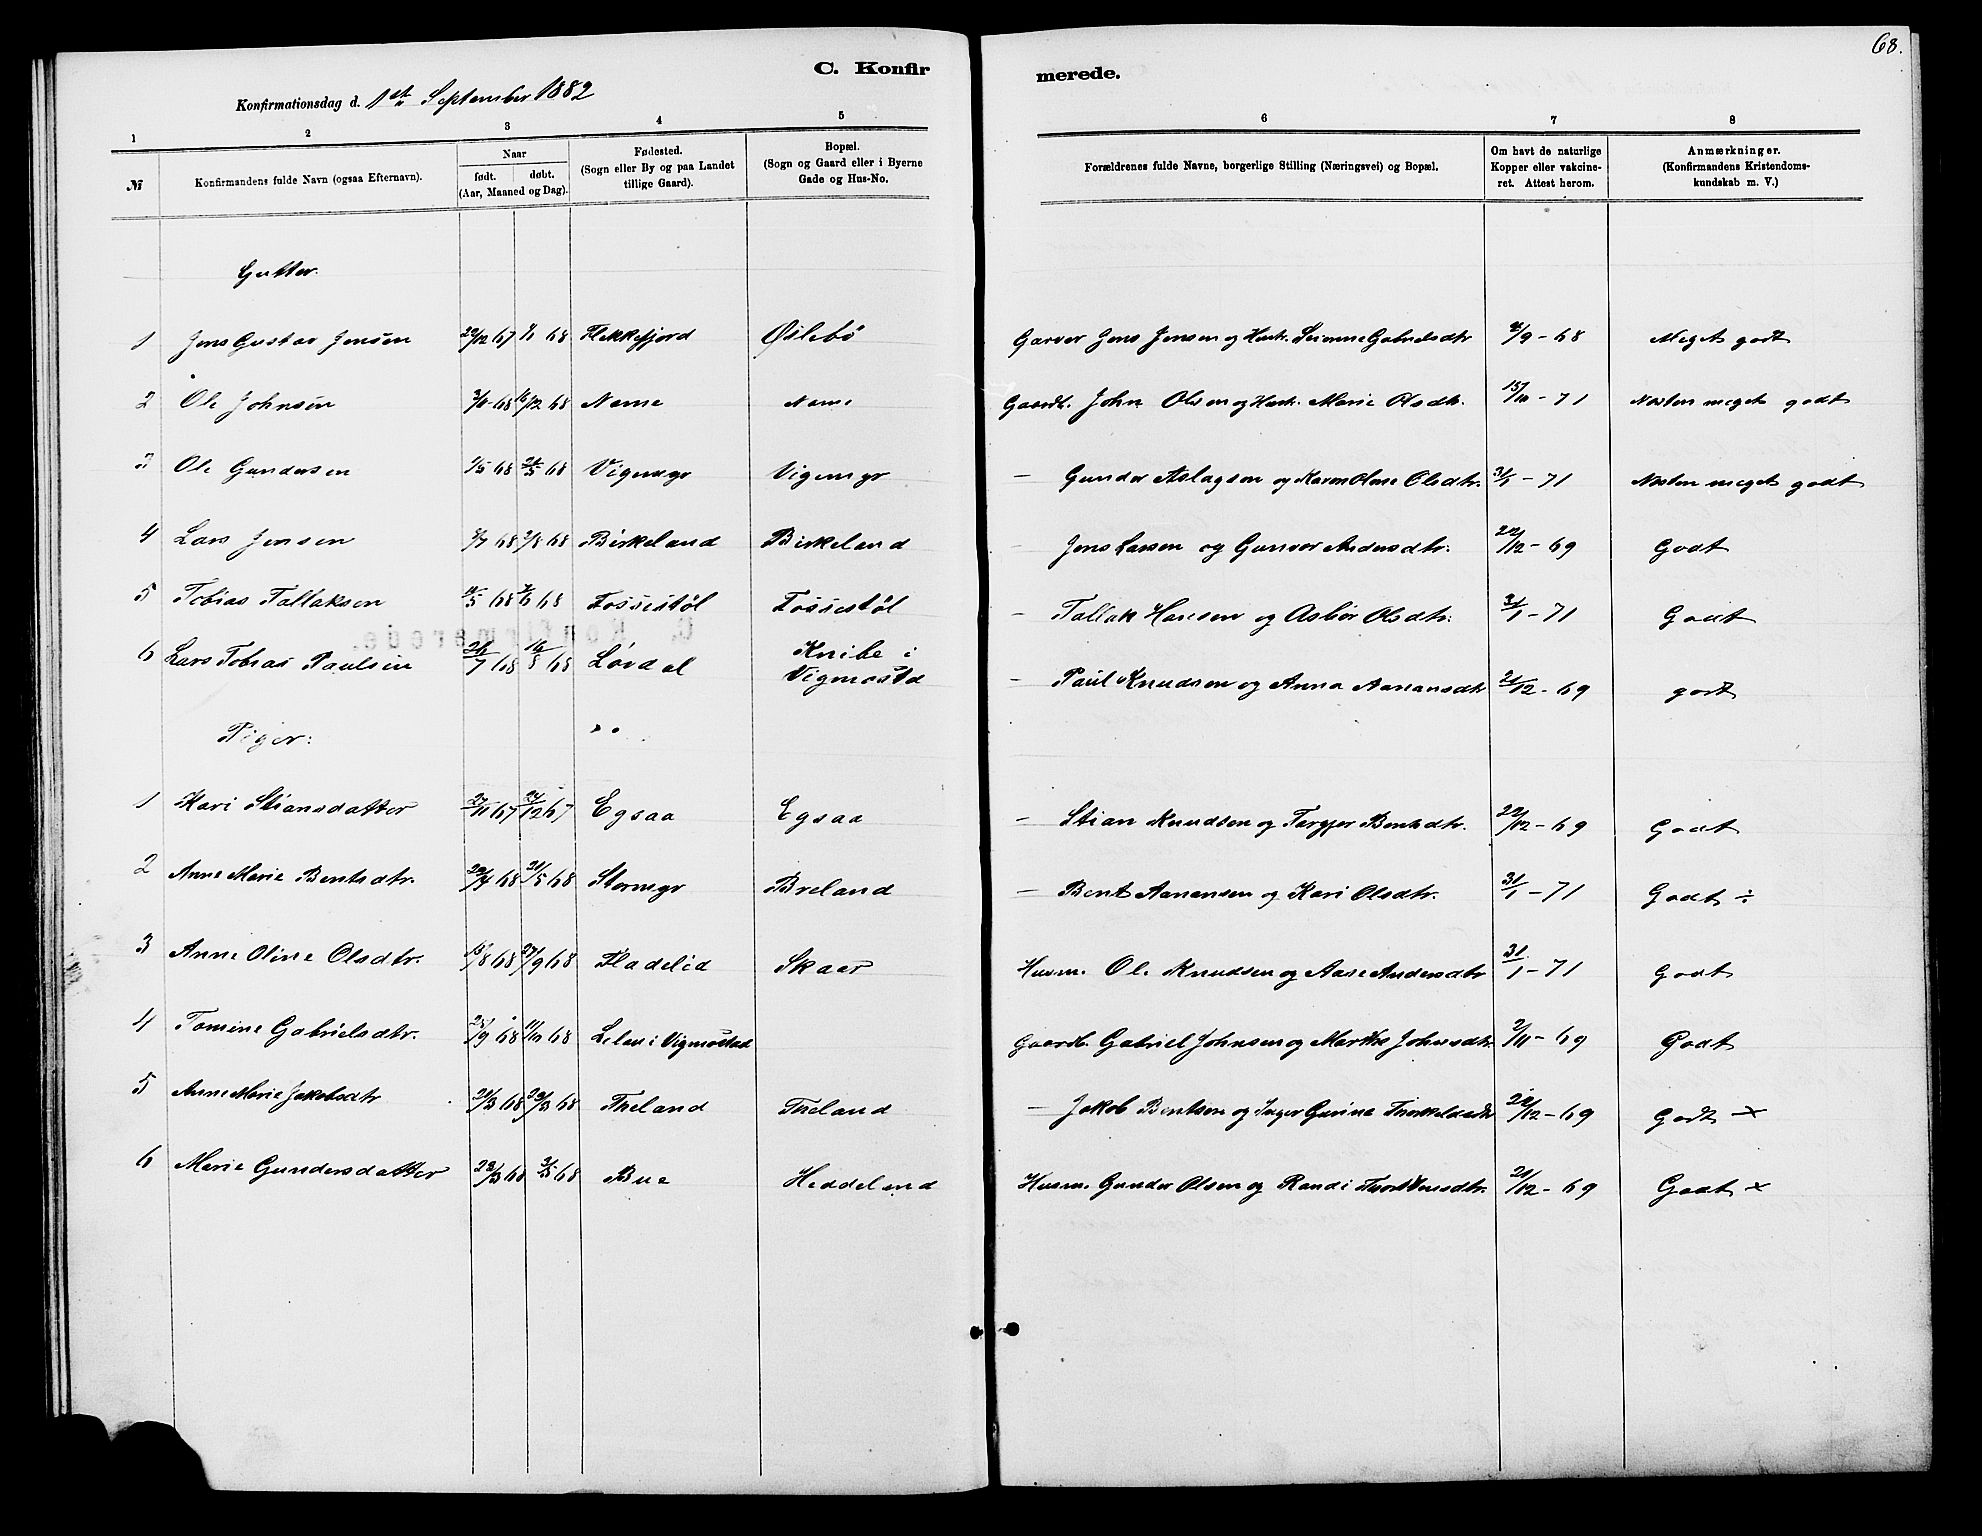 68.
C. Konfirmerede.
Konfirmationsdag d. 1ste September 1882
1 2 3 4 5 6 7 8
№ Konfirmandens fulde Navn (ogsaa Efternavn).
Naar
født. døbt.
(Aar, Maaned og Dag).
Fødested.
(Sogn eller By og paa Landet
tillige Gaard).
Bopæl.
(Sogn og Gaard eller i Byerne
Gade og Hus-No.
Forældrenes fulde Navne, borgerlige Stilling (Næringsvei) og Bopæl.
Om havt de naturlige
Kopper eller vakcine-
ret. Attest herom.
Anmærkninger.
(Konfirmandens Kristendoms-
kundskab m. V.)
Gutter.
1 Jens Gustav Jensen 29/12 67 68 Flekkefjord Øslebø Garver Jens Jensen og Hustr. Gabrielsdtr /9 - 68 Meget godt
2 Ole Johnsen 68 /12 68 Nome Nome Gaardb. John Olsen og Hustr. Marie Olsdtr. 15/10 - 71 Næsten meget godt
3 Ole Gundersen /5 68 24/5 68 Vigemyr Vigemyr — Gunder Aslagsen og Karen Olene Olsdtr. 31/1 - 71 Næsten meget godt
4 Lars Jensen /7 68 /8 68 Birkeland Birkeland — Jens Larsen og Gunvor Andersdtr. 22/12 - 69 Godt
5 Tobias Tallaksen /5 68 /6 68 Fossestøl Fossestøl — Tallak Hansen og Asbør Olsdtr. 31/1 - 71 Godt
6 Lars Tobias Paulsen 26/7 68 16/8 68 Løvdal Knibe i
Vigmostd — Paul Knudsen og Anna Aanensdtr 21/12 - 69 godt
Piger:
1 Kari Stiansdatter 27/11 67 26/12 67 Egsaa Egsaa — Stian Knudsen og Torgjer Bentsdtr. 22/12 - 69 Godt
2 Anne Marie Bentsdtr. 29/4 68 21/5 68 Stormyr Breland — Bent Aanensen og Kari Olsdtr. 31/1 - 71 Godt ÷
3 Anne Oline Olsdtr. 15/8 68 27/9 68 Fladelid Skaar Husm. Ole Knudsen og Aase Andersdtr 31/1 - 71 Godt
4 Tomine Gabrielsdtr. 25/9 68 11/10 68 Lelan i Vigmostad Gaardb. Gabriel Johnsen og Marthe Johnsdtr. 2/11 - 69 Godt
5 Anne Marie Jakobsdtr 21/3 68 29/3 68 Theland Theland — Jakob Bentsen og Inger Gurine Thorkelsdtr 22/12 - 69 Godt ×
6 Marie Gundersdatter 23/3 68 3/5 68 Bue Heddeland Husm. Gunder Olsen og Randi 21/12 - 69 Godt ×